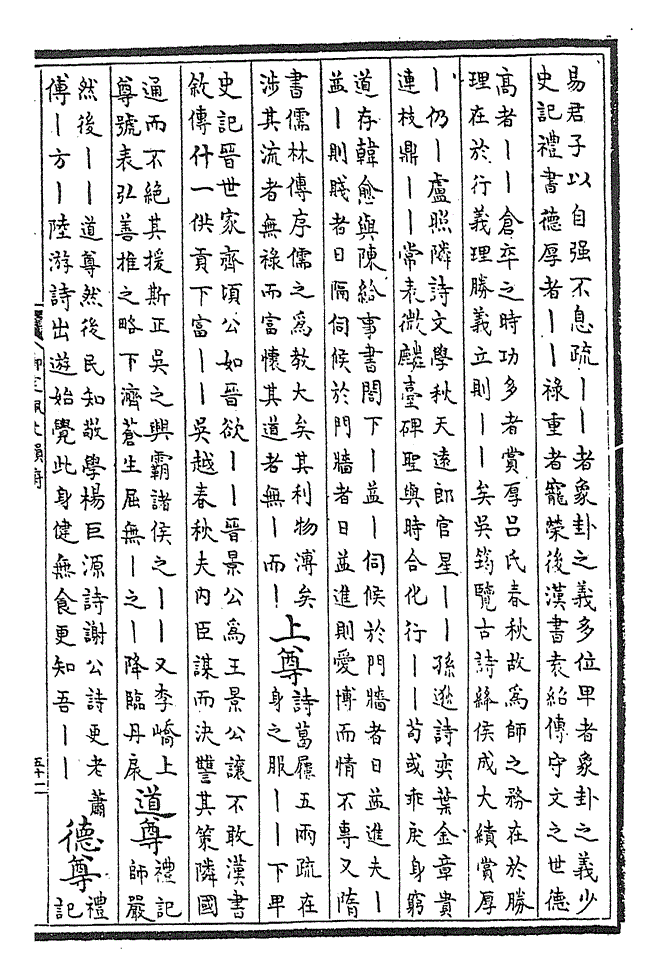 易君子以自强不息疏｜｜者象卦之義多位卑者象卦之義少
史記禮書德厚者｜｜祿重者寵榮後漢書袁紹傳守文之世德
高者｜｜倉卒之時功多者賞厚吕氏春秋故爲師之務在於勝
理在於行義理勝義立則｜｜矣吴筠覽古詩絲侯成大績賞厚
｜仍｜盧照隣詩文學秋天遠郎官星｜｜孫逖詩奕葉金章貴
連枝鼎｜｜常袞微麟臺碑聖與時合化行｜｜苟或乖戾身窮
道存韓愈與陳給事書閤下｜益｜伺候於門牆者日益進夫｜
益｜則賤者日隔伺候於門牆者日益進則愛博而情不專又隋
書儒林傳序儒之爲教大矣其利物溥矣
涉其流者無祿而富懷其道者無｜而｜
上尊
詩葛屨五兩疏在
身之服｜｜下卑
史記晉世家齊頃公如晉欲｜｜晉景公爲王景公讓不敢漢書
敘傳什一供貢下富｜｜吴越春秋夫内臣謀而決讐其策隣國
通而不絶其援斯正吴之興霸諸侯之｜｜又李嶠上
尊號表弘善推之略下濟蒼生屈無｜之｜降臨丹扆
道尊
禮記
師嚴
然後｜｜道尊然後民知敬學楊巨源詩謝公詩更老蕭
傅｜方｜陸游詩出遊始覺此身健無食更知吾｜｜
德尊
禮
記
五十二